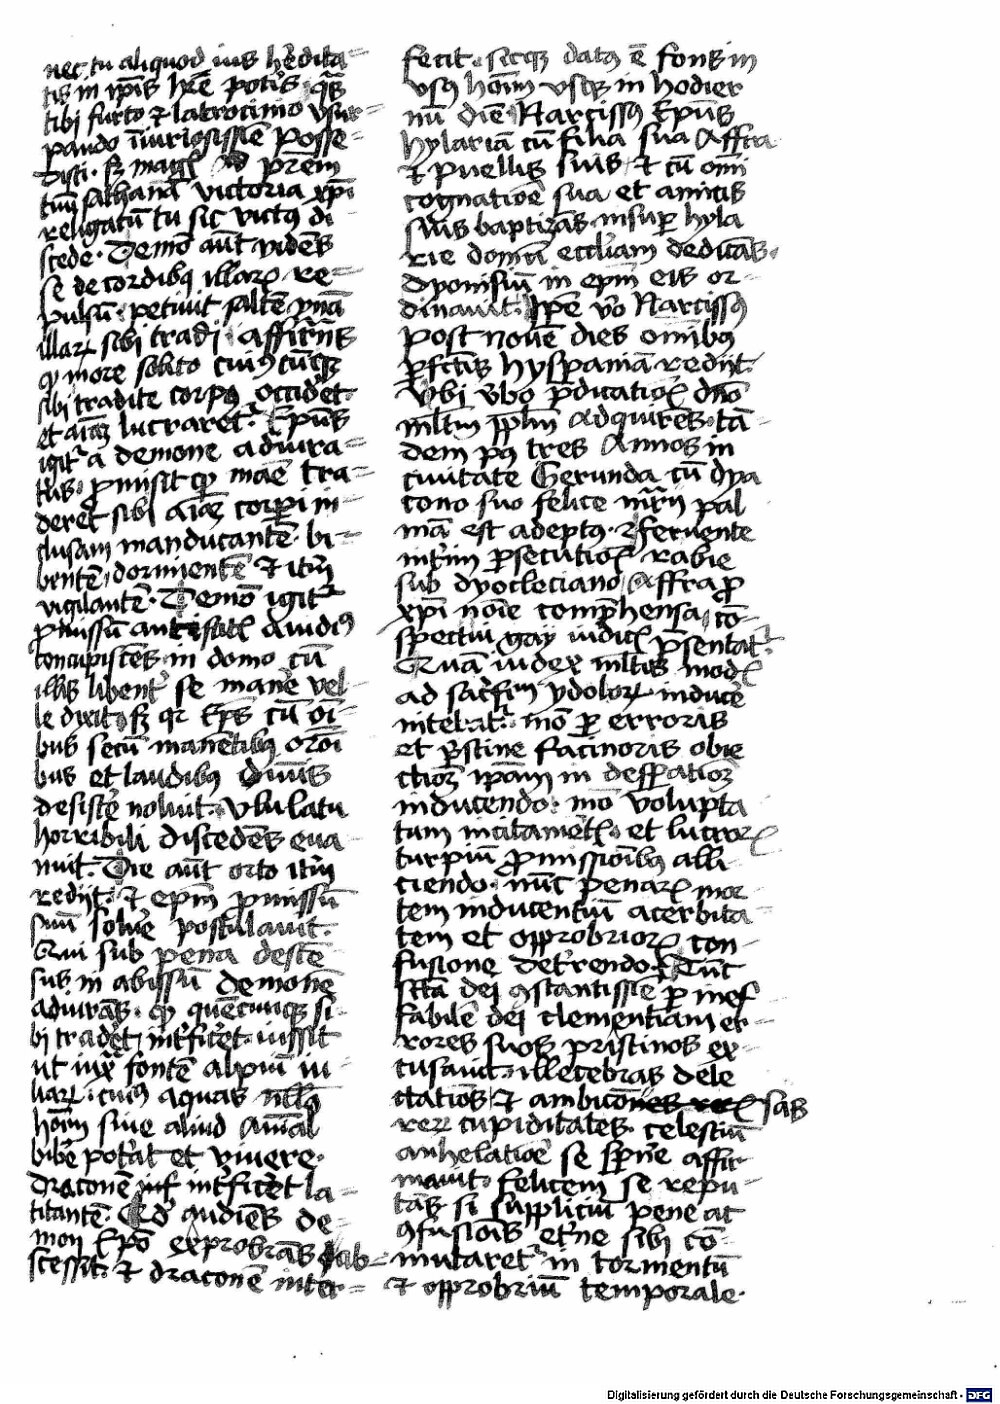 nec tu aliquod ius hẽdita=
tis in ip̃is hr̃e potis q̃s
tibi furto et latrocinio vsur=
pando iniuriosissiẽ posse=
disti. sꝫ magꝭ ad pr̃em
tuũ sathanã victoria xp̃i
religatũ tu sic victꝯ di
scede. Demõ aũt vidẽs
se de cordibꝯ illarꝝ re=
pulsũ. petiuit saltẽ vnã
illarꝝ sibi tradi affirmãs
ꝙ more solito cuiꝯcũqꝫ
sibi tradite corpꝯ occidẽt
et aĩaꝫ lucraret᷑. Ep̃us
igit᷑ a demone adiura=
tus. ꝓmisit ꝙ eaẽ tra=
deret sibi aĩaꝫ corp̃i in=
clusam manducantẽ. bi=
bentẽ dormientẽ et itẽ
vigilantẽ. Demõ igit᷑
ꝓmissũ auidiꝯ
concupiscẽs in domo cũ
illis libent᷑ se manẽ vel=
le dixit sꝫ qr ep̃s cũ oĩ=
bus secũ manẽtibꝯ orõi
bus et laudibꝯ diuiĩs
desistẽ noluit. vlulatu
horribili discedẽs eua
nuit. Die aũt orto itẽ
redijt. et ep̃m ꝓmissũ
suũ soluẽ postulauit.
Qui sub pena descẽ
sus in abissũ demonẽ
adiurãs. ꝙ quẽcunqꝫ si=
bi tradẽt int᷑ficẽt. iussit
ut iuxͣ fontẽ alpiũ iu=
liarꝝ. cuiꝯ aquas nullꝯ
hoĩm siue aliud aĩmal
bibẽ pot᷑at et viuere.
draconẽ int᷑ficẽt la=
titantẽ. Qd᷑ audiẽs de=
mon ep̃õ exprobrãs ab=
scessit. et draconẽ inter=
fecit. sicqꝫ datꝯ ẽ fons in
vsꝯ hoĩm vsqꝫ in hodier
nũ diẽ Narcissꝯ Ep̃us
hylariã cũ filia sua Affra
et puellis suis et cũ om̃i
cognatiõe sua et amicis
suis baptizãs insuꝑ hyla
rie domũ eccl̃iam dedicãs.
dyonisiũ in ep̃m eiꝰ or=
dinauit. Ip̃e v̾o Narcissꝯ
post nouẽ dies oĩmibꝯ
ꝑfectis hyspaniã redijt.
Vbi v̾bo p̃dicatiõꝭ dño
ml̃tũ pp̃lm adquirẽs. tã=
dem pꝯ tres Annos in
ciuitate Gerunda cũ dya
cono suo felice mr̃ij pal
mã est adeptꝯ. et feruente
int᷑im ꝑsecutiõꝭ rabie
sub dyocleciano Affra ꝓ
xp̃i noĩe comp̃hensa cõ=
spectui gay iudicꝭ p̃sentat᷑.
Quã iudex ml̃tis modꝭ
ad sac̾ficiũ ydolorꝝ inducẽ
intebat᷑. mõ ꝑ erroris
et p̾stine facinoris obie
ctioꝫ ip̃am in desꝑatioꝫ
inducendo. mõ volupta
tum incitamẽtꝭ. et lucrorꝝ
turpiũ ꝓmissionibꝯ alli=
ciendo. nũc penarꝝ mor=
tem inducentiũ acerbita=
tem et opprobriorꝝ con=
fusione det᷑rendo. Tũc
sc̃a dei ꝯstantissiẽ ꝑ inef
fabilẽ dei clementiam er=
rores suos pristinos ex=
cusauit. illecebras dele
ctatiõs et ambicõsas
rerꝝ cupiditates. celestiũ
anhelatiõe se spr̃ne affir=
mauit. felicem se repu=
tãs si suppliciũ pene at
ꝯfusiõis et᷑ne sibi cõ=
mutaret᷑ in tormentũ
et opprobriũ temporale.
Digitalisierung gefördert durch die Deutsche Forschungsgemeinschaft - DFG